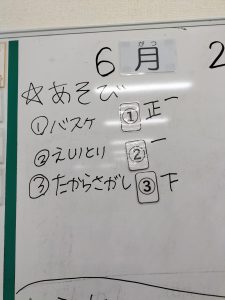 6 月 2
がつ
☆あそび
①バスケ ① 正一
②えいとり ② 一
③たからさがし ③ 下